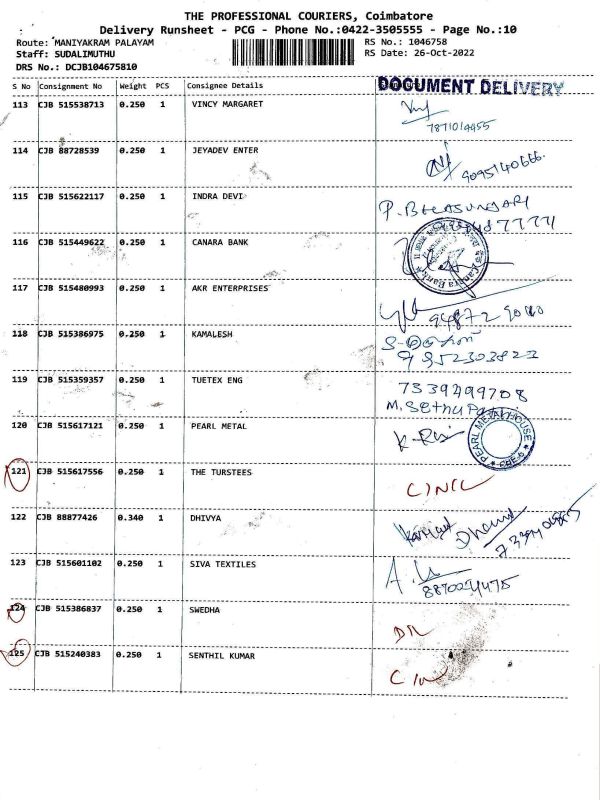 THE PROFESSIONAL COURIERS, Coimbatore
Delivery Runsheet - PCG - Phone No.:0422-3505555 - Page No.:10
Route: MANIYAKRAM PALAYAM RS No.: 1046758
Staff: SUDALIMUTHU RS Date: 26-Oct-2022
DRS No.: DCJB104675810
S No Consignment No Weight PCS Consignee Details
DOCUMENT DELIVERY
113 CJB 515538713 0.250 1 VINCY MARGARET
7871014455
114 CJB 88728539 0.250 1 JEYADEV ENTER
9095140666
115 CJB 515622117 0.250 1 INDRA DEVI
116 CJB 515449622 0.250 1 CANARA BANK
Canara Bank
117 CJB 515480993 0.250 1 AKR ENTERPRISES
118 CJB 515386975 0.250 1 KAMALESH
9952303823
119 CJB 515359357 0.250 1 TUETEX ENG
7339499708
M. Sethupathi
120 CJB 515617121 0.250 1 PEARL METAL
PEARL METAL HOUSE
CBE-6
121 CJB 515617556 0.250 1 THE TURSTEES
122 CJB 88877426 0.340 1 DHIVYA
123 CJB 515601102 0.250 1 SIVA TEXTILES
124 CJB 515386837 0.250 1 SWEDHA
125 CJB 515240383 0.250 1 SENTHIL KUMAR